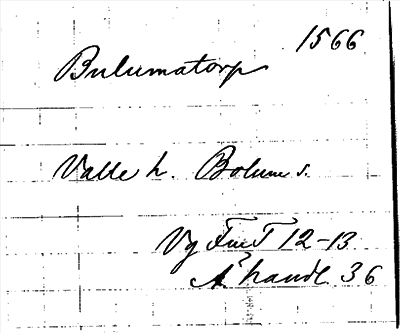 1566
Bulumatorp
Valle h. Bolum s.
Vg FmT 12-13
Ä handl. 36